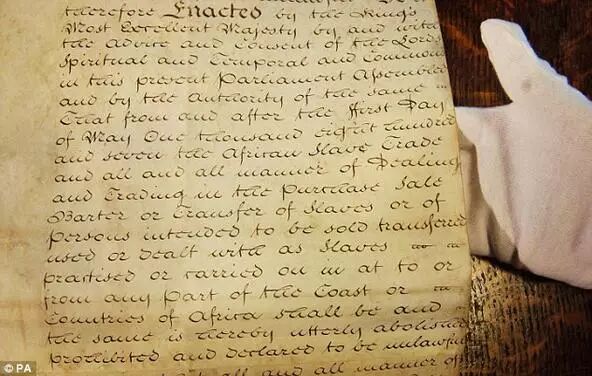 therefore Enacted by the King's
Most Excellent Majesty by and with
the Advice and Consent of the Lords
Spiritual and Temporal and Commons
in this present Parliament Assembled
and by the Authority of the same
That from and after the First Day
of May One thousand eight hundred
and seven the African Slave Trade
and all and all manner of Dealing
and Trading in the Purchase Sale
Barter or Transfer of Slaves or of
Persons intended to be sold transferred
used or dealt with as Slaves
practised or carried on in at to or
from any Part of the Coast or
Countries of Africa shall be and
the same is hereby utterly abolished
prohibited and declared to be unlawful
all and all manner of
© PA